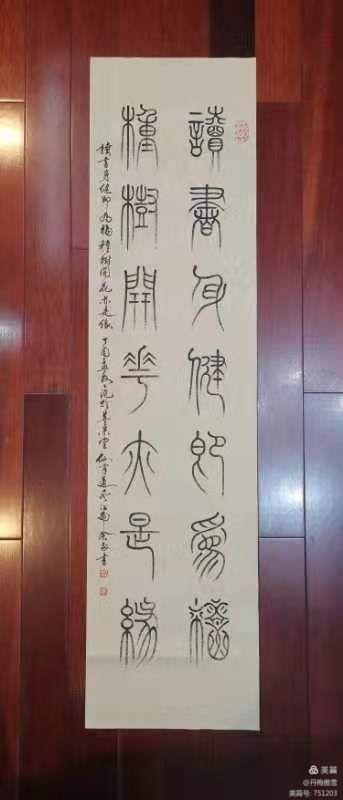 讀書身健即為福
種樹開花亦是緣
讀書身健即為福種樹開花亦是緣 丁酉 書
美篇
@丹梅傲雪
美篇号: 751203